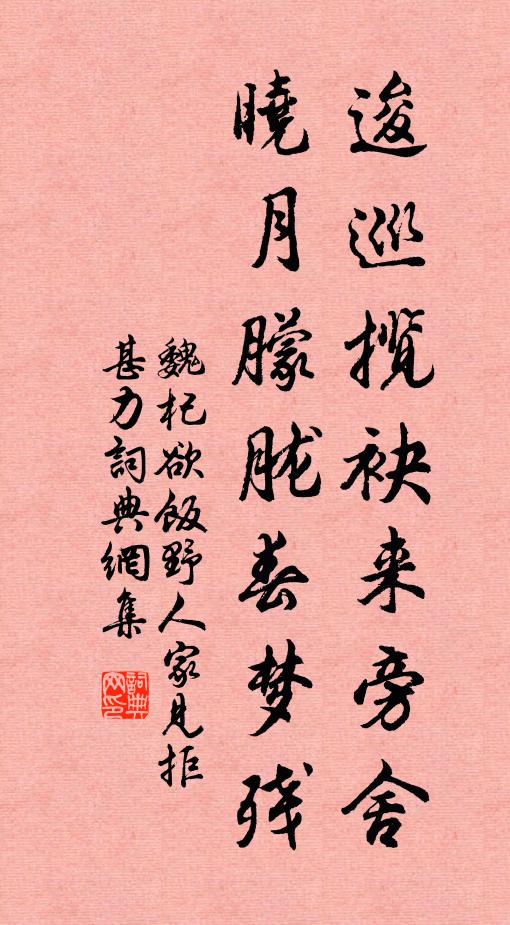 逡巡揽袂来旁舍
曉月朦胧春梦残
魏杞欲飯野人家見拒
甚力詞典網集
詞典网印